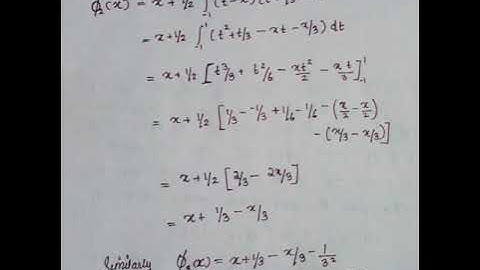 ϕ₂(x) = x + 1/2 ∫₋₁¹ (t-x)(t+1/3)
= x + 1/2 ∫₋₁¹ (t² + t/3 - xt - x/3) dt
= x + 1/2 [t³/3 + t²/6 - xt²/2 - xt/3]₋₁¹
= x + 1/2 [1/3 - -1/3 + 1/6 - 1/6 - (x/2 - x/2)
- (x/3 - x/3)]
= x + 1/2 [2/3 - 2x/3]
= x + 1/3 - x/3
Similarly ϕ₃(x) = x + 1/3 - x/3 - 1/3²